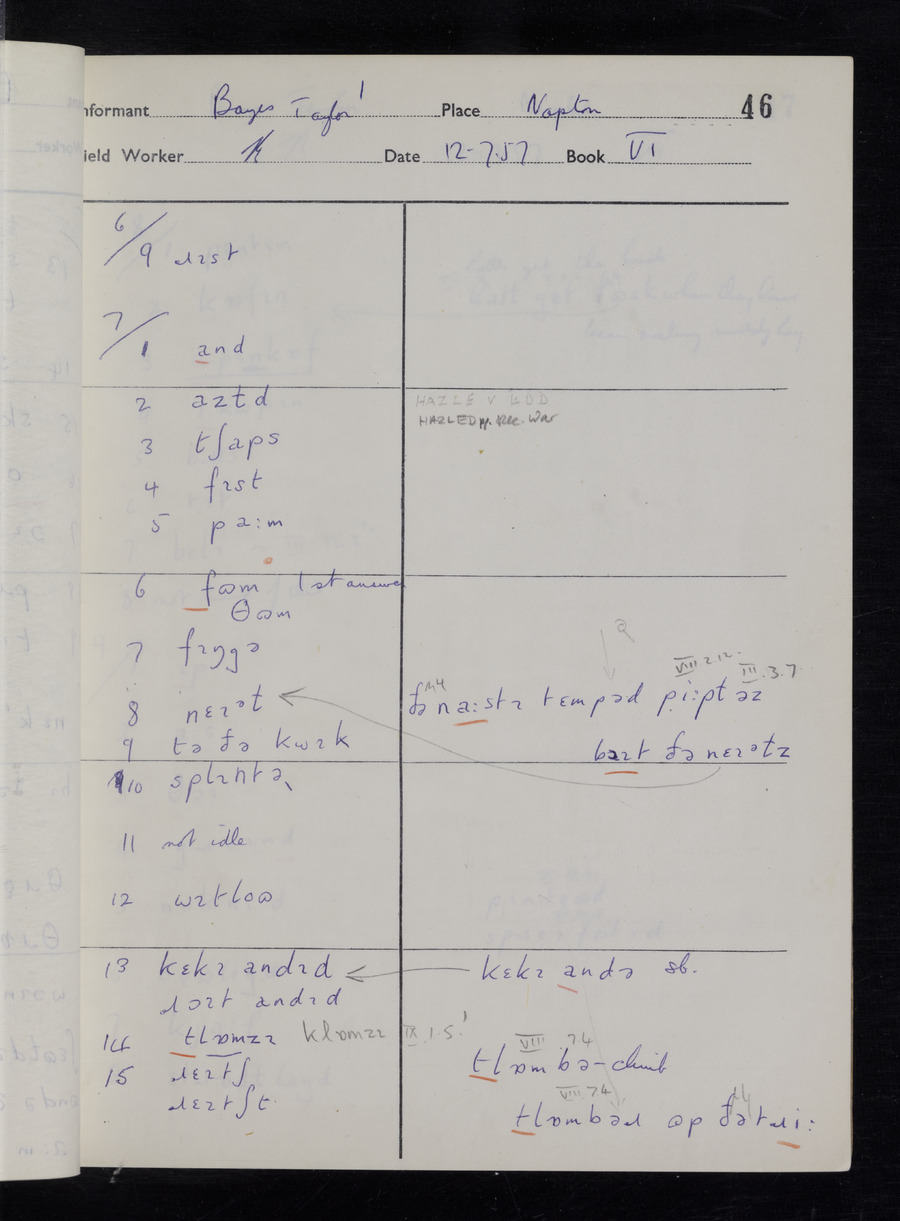 Informant Bayes Taylor Place Napton 46
Field Worker Date 12-7.57 Book VI
6/9 ɹɪst
7/1 and
2 aztd
HAZLED pp. Rec. War
3 tʃaps
4 fɪst
5 pa:m
6 fɷm 1st answer
θɷm
7 fɪŋgə
8 nɛɪət
ðə na:stɪ tɛmpəd pi:pt əz
VIII.2.12. III.3.7
9 tə ðə kwɪk
baɪt ðə nɛɪətz
10 splɪntə
11 not idle
12 wɪtloɷ
13 kɛkɪ andɪd
kɛkɪ andə sb.
ɹɔɪt andɪd
14 tlɒmzɪ klɒmzɪ IX.1.5.
VIII 7.4
tlɒm bə-climb
15 ɹɛɪtʃ
ɹɛɪtʃt
VIII 7.4
tlɒmbəɹ ɷp ðət ɹi: